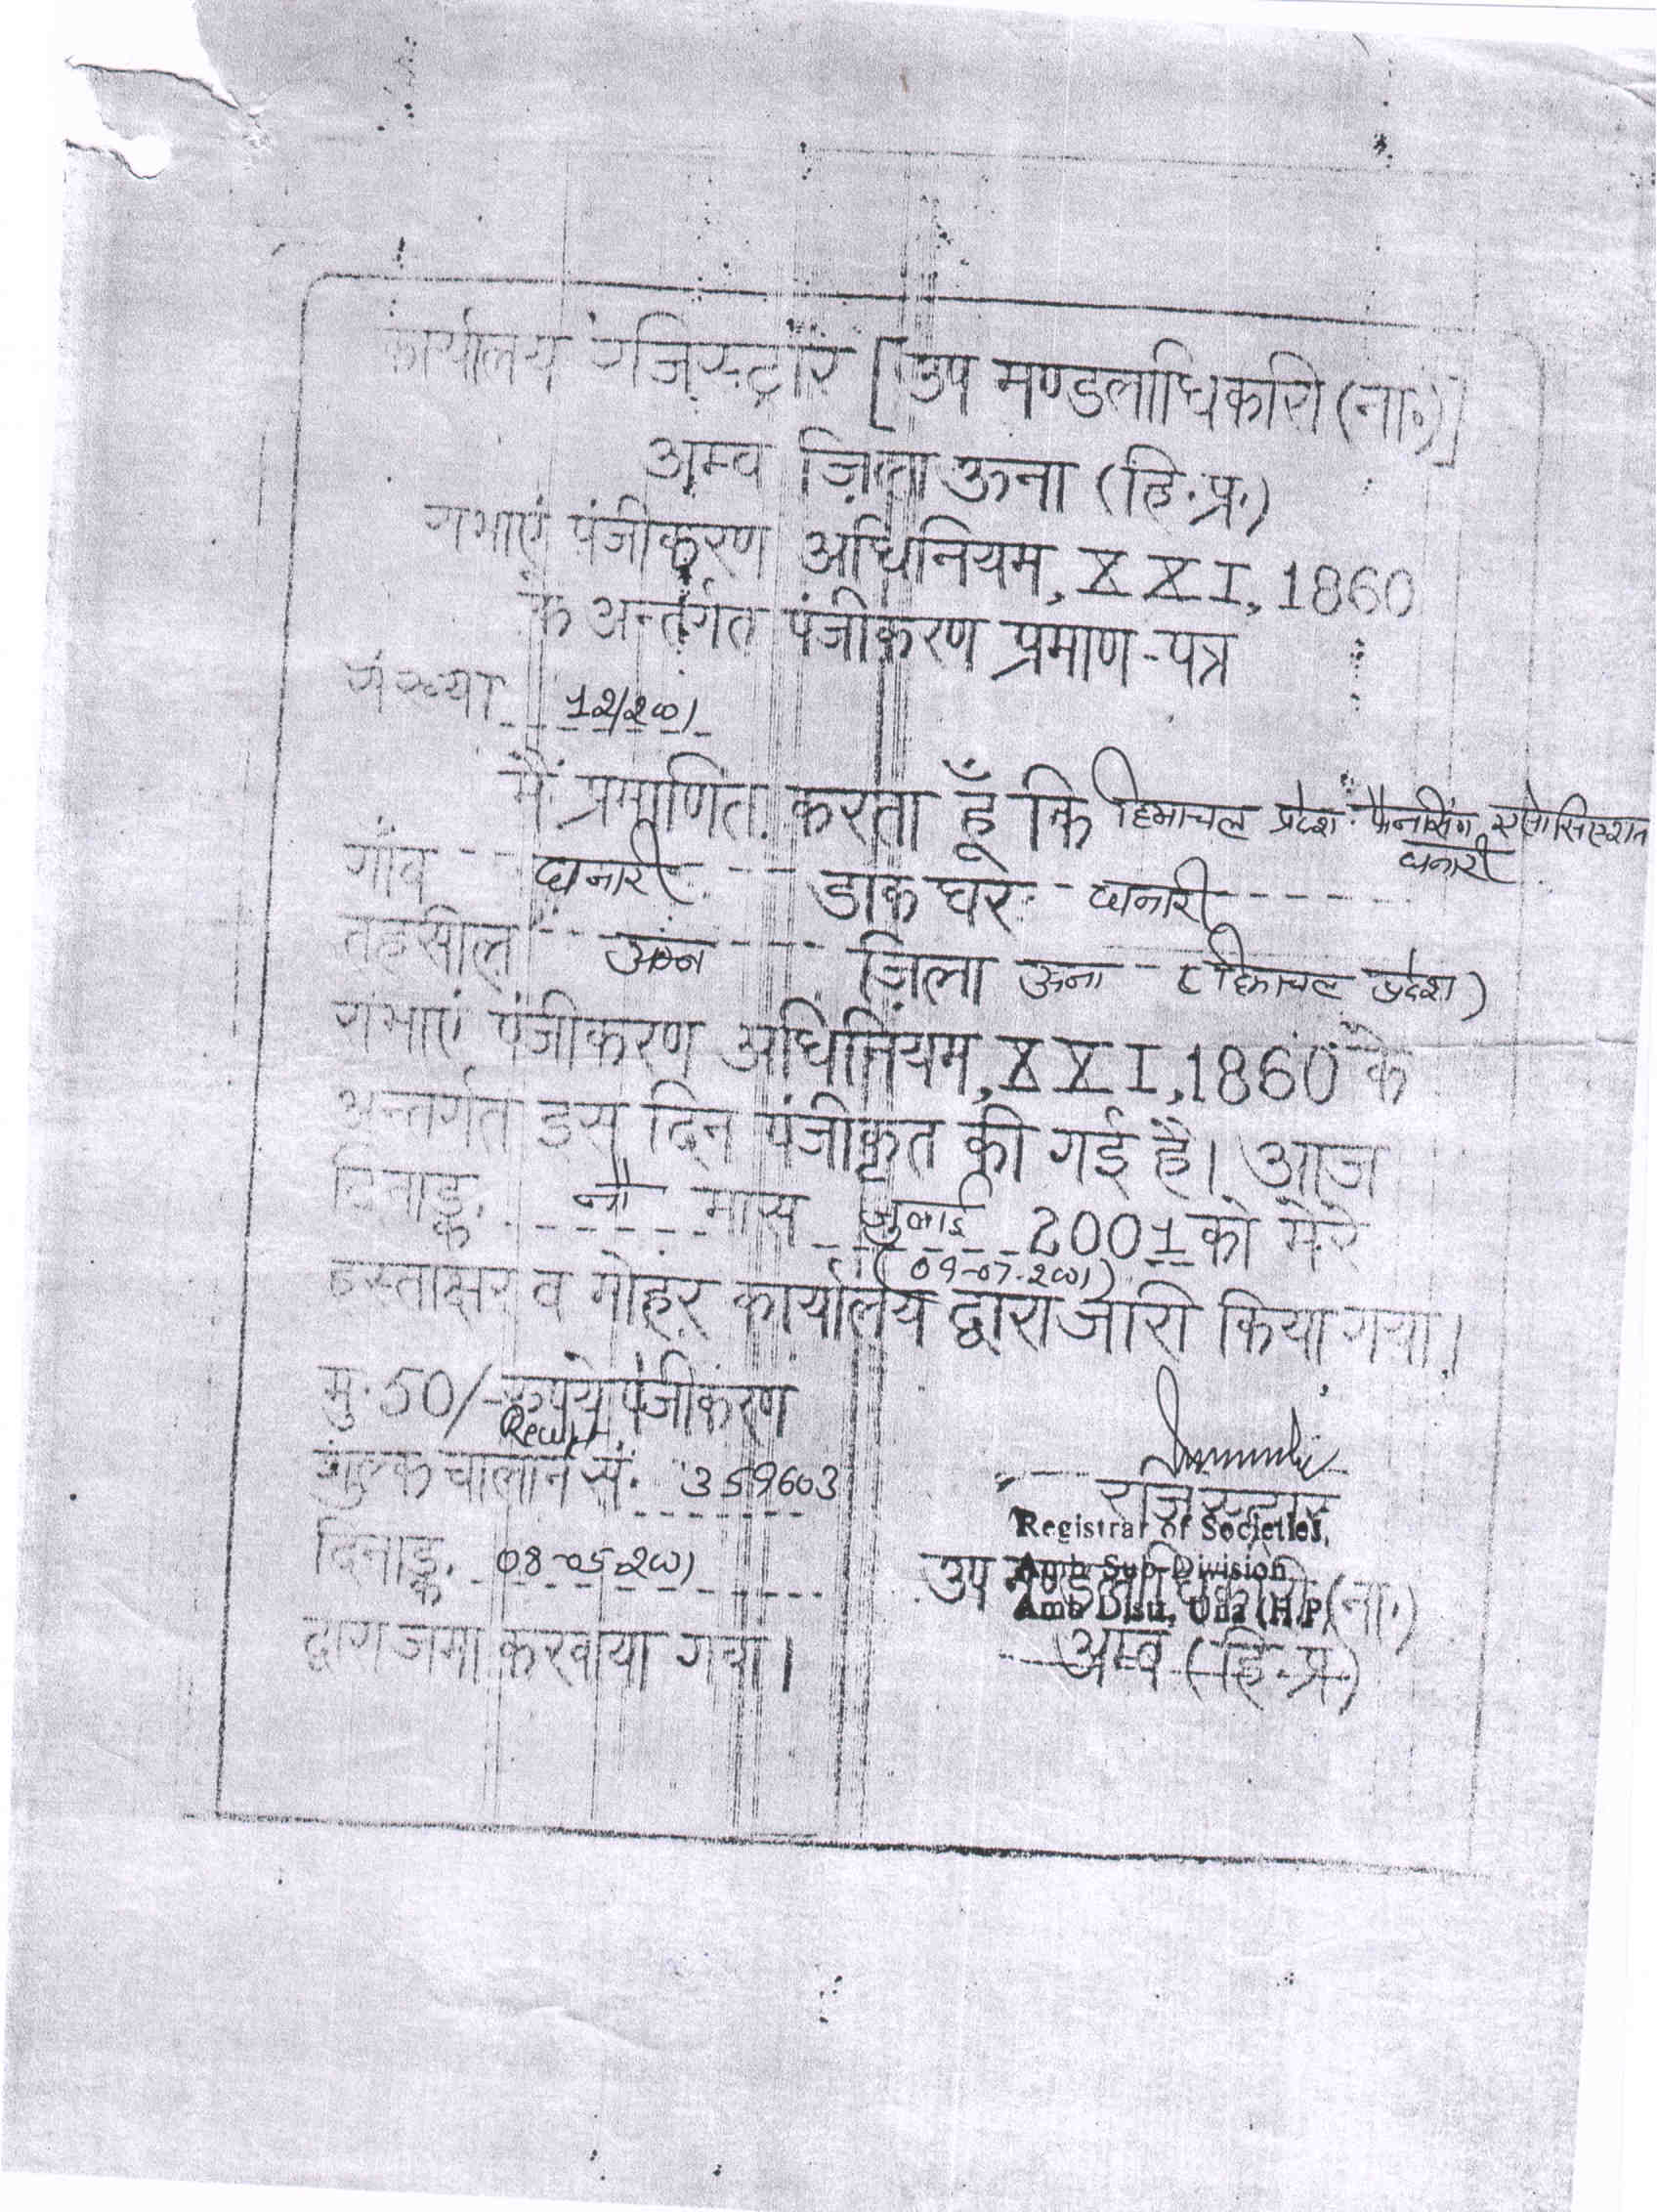 कार्यालय रजिस्ट्रार [उप मण्डलाधिकारी (ना०)]
अम्ब ज़िला ऊना (हि.प्र.)
सभाएं पंजीकरण अधिनियम, XXI, 1860
के अन्तर्गत पंजीकरण प्रमाण-पत्र
संख्या 12/2001
मैं प्रमाणित करता हूँ कि हिमाचल प्रदेश फैनसिंग एसोसिएशन
घनारी
गाँव घनारी डाक घर घनारी
तहसील अम्ब ज़िला ऊना (हिमाचल प्रदेश)
सभाएं पंजीकरण अधिनियम, XXI, 1860 के
अन्तर्गत इस दिन पंजीकृत की गई है। आज
दिनाङ्क नौ मास जुलाई 2001 को मेरे
(09-07-2001)
हस्ताक्षर व मोहर कार्यालय द्वारा जारी किया गया।
मु. 50/- रूपये पंजीकरण
शुल्क चालान सं. 359603
दिनाङ्क 08-05-2001
द्वारा जमा करवाया गया।
रजिस्ट्रार
Registrar of Societies,
Amb Sub-Division
उप मण्डलाधिकारी (ना.)
Amb Distt, Una (H.P)
अम्ब (हि.प्र.)